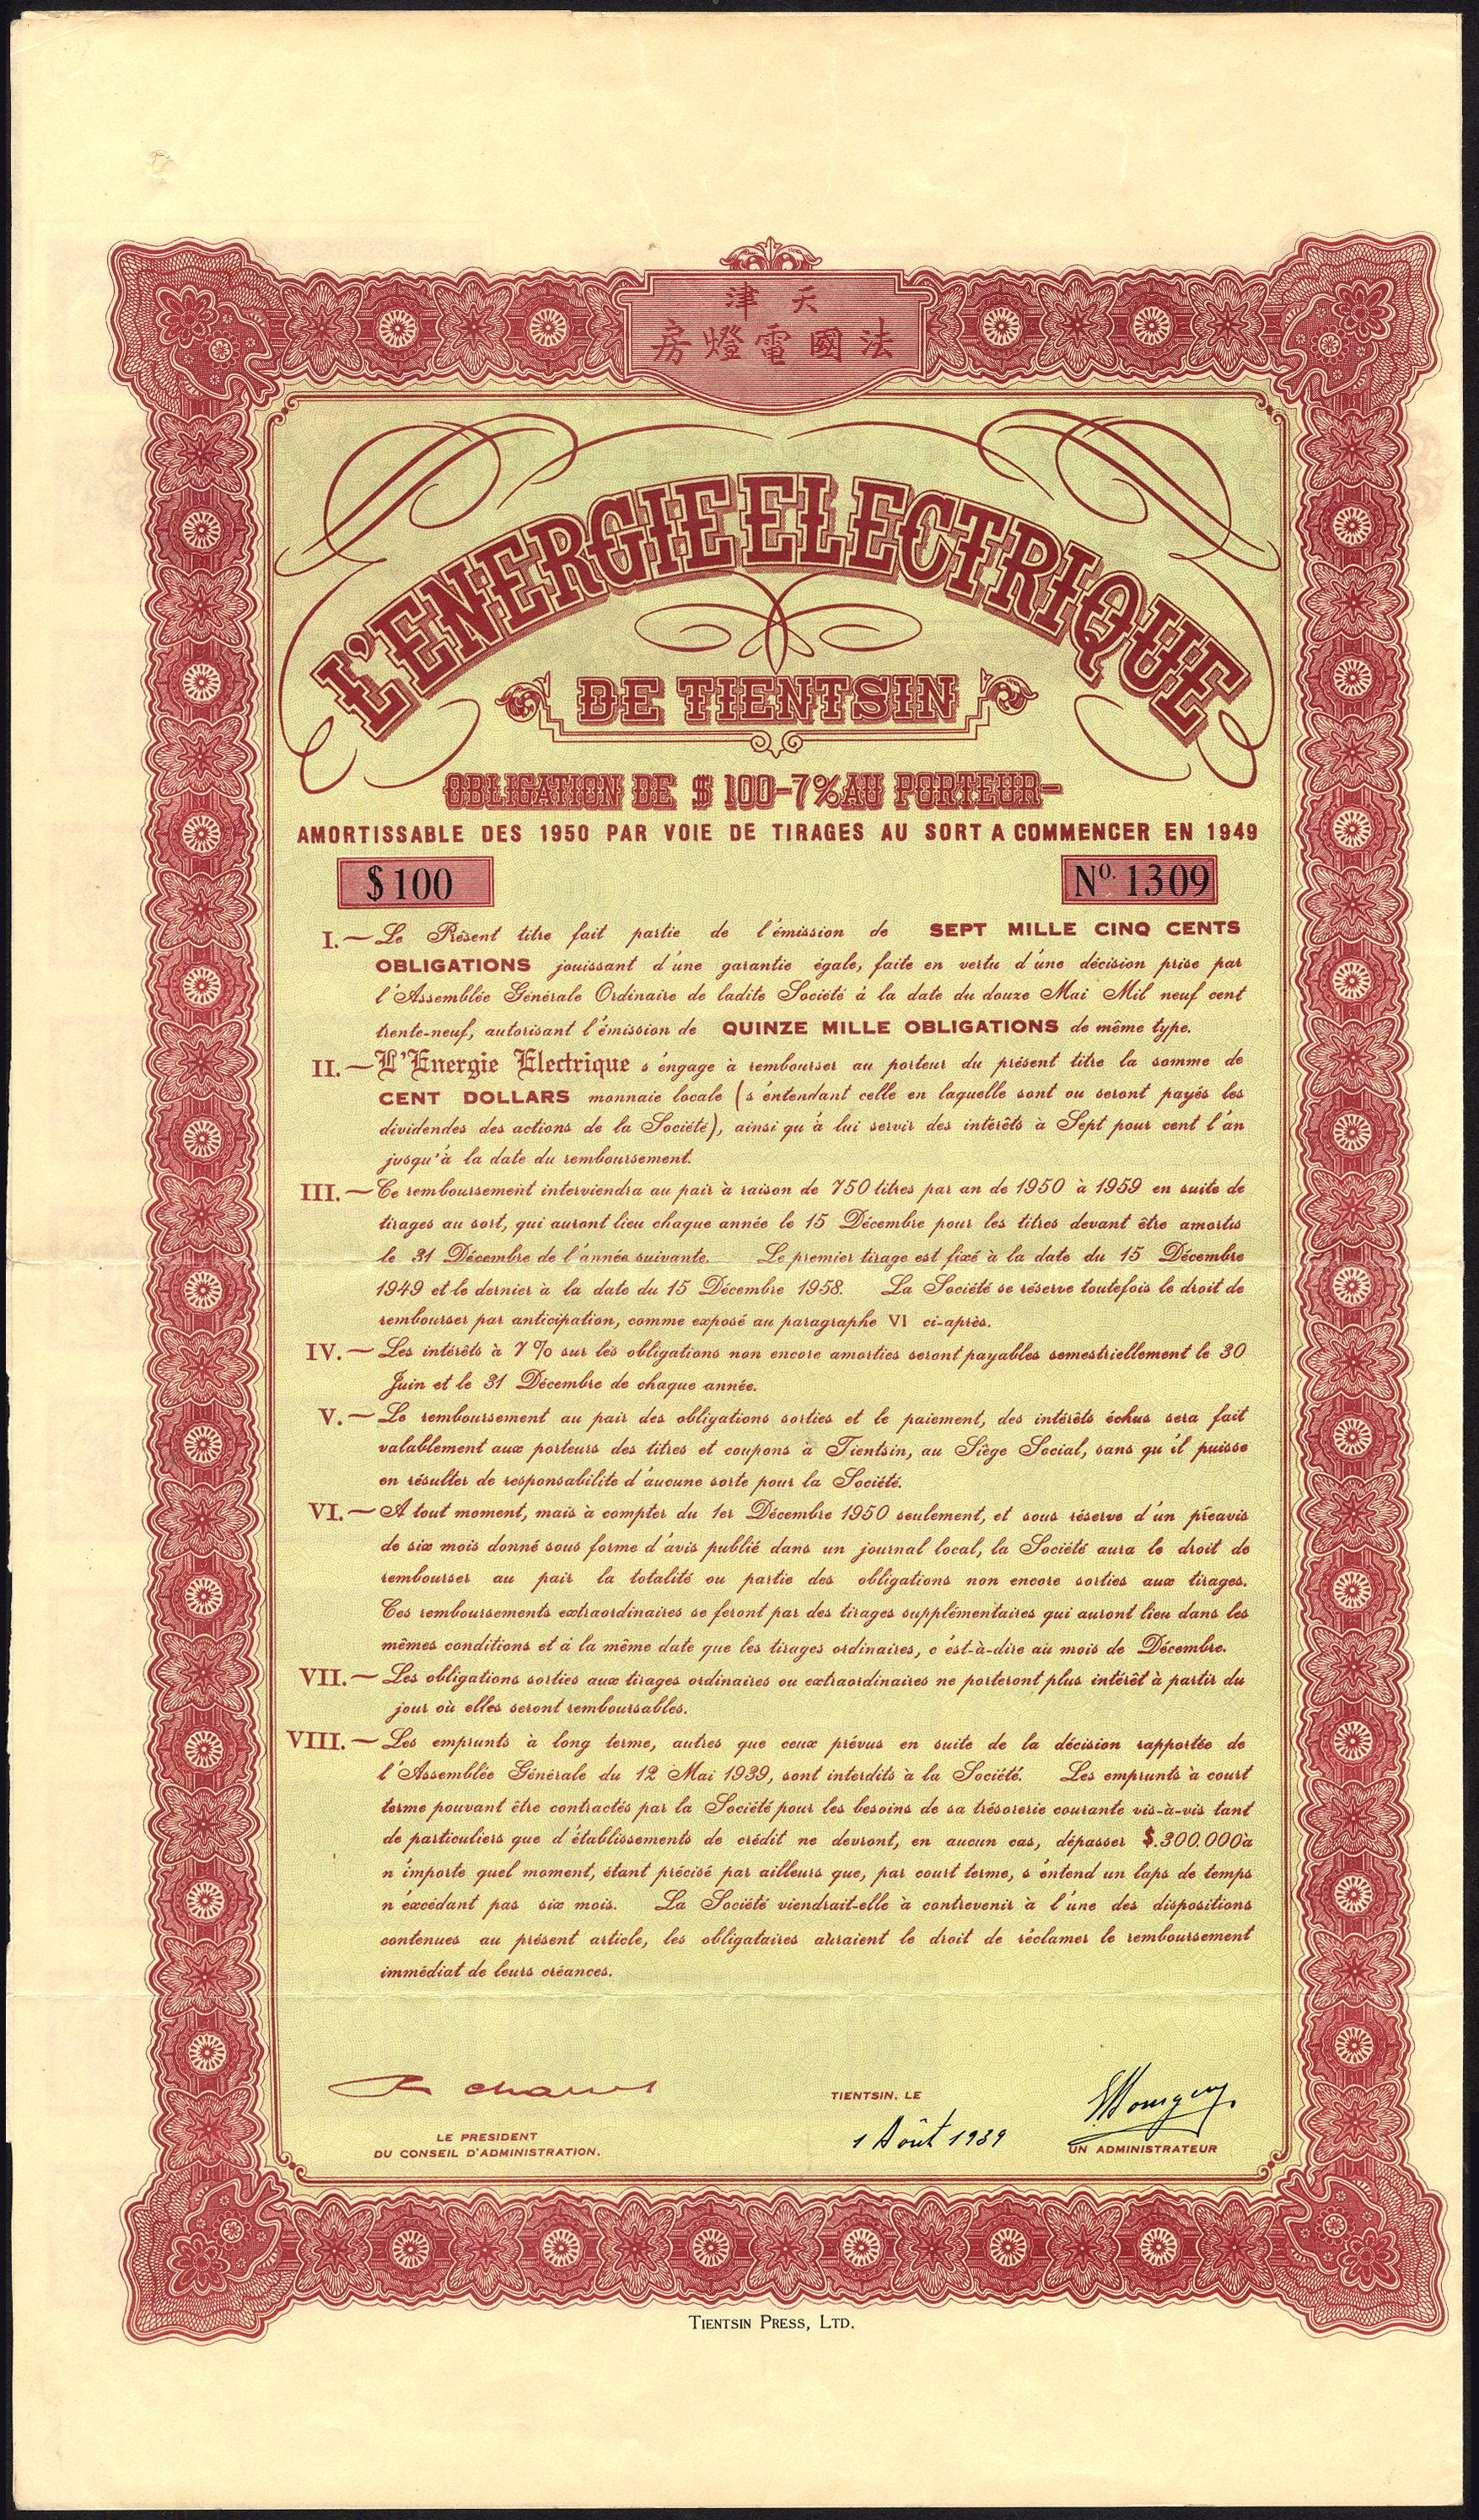 天津
法國電燈房
L'ENERGIE ELECTRIQUE
DE TIENTSIN
OBLIGATION DE $ 100-7% AU PORTEUR-
AMORTISSABLE DES 1950 PAR VOIE DE TIRAGES AU SORT A COMMENCER EN 1949
$100
No. 1309
I.— Le Présent titre fait partie de l'émission de SEPT MILLE CINQ CENTS
OBLIGATIONS jouissant d'une garantie égale, faite en vertu d'une décision prise par
l'Assemblée Générale Ordinaire de ladite Société à la date du douze Mai Mil neuf cent
trente-neuf, autorisant l'émission de QUINZE MILLE OBLIGATIONS de même type.
II.— L'Energie Electrique s'engage à rembourser au porteur du présent titre la somme de
CENT DOLLARS monnaie locale (s'entendant celle en laquelle sont ou seront payés les
dividendes des actions de la Société), ainsi qu'à lui servir des intérêts à Sept pour cent l'an
jusqu'à la date du remboursement.
III.— Ce remboursement interviendra au pair à raison de 750 titres par an de 1950 à 1959 en suite de
tirages au sort, qui auront lieu chaque année le 15 Décembre pour les titres devant être amortis
le 31 Décembre de l'année suivante. Le premier tirage est fixé à la date du 15 Décembre
1949 et le dernier à la date du 15 Décembre 1958. La Société se réserve toutefois le droit de
rembourser par anticipation, comme exposé au paragraphe VI ci-après.
IV.— Les intérêts à 7% sur les obligations non encore amorties seront payables semestriellement le 30
Juin et le 31 Décembre de chaque année.
V.— Le remboursement au pair des obligations sorties et le paiement, des intérêts échus sera fait
valablement aux porteurs des titres et coupons à Tientsin, au Siège Social, sans qu'il puisse
en résulter de responsabilite d'aucune sorte pour la Société.
VI.— A tout moment, mais à compter du 1er Décembre 1950 seulement, et sous réserve d'un préavis
de six mois donné sous forme d'avis publié dans un journal local, la Société aura le droit de
rembourser au pair la totalité ou partie des obligations non encore sorties aux tirages.
Ces remboursements extraordinaires se feront par des tirages supplémentaires qui auront lieu dans les
mêmes conditions et à la même date que les tirages ordinaires, c'est-à-dire au mois de Décembre.
VII.— Les obligations sorties aux tirages ordinaires ou extraordinaires ne porteront plus intérêt à partir du
jour où elles seront remboursables.
VIII.— Les emprunts à long terme, autres que ceux prévus en suite de la décision rapportée de
l'Assemblée Générale du 12 Mai 1939, sont interdits à la Société. Les emprunts à court
terme pouvant être contractés par la Société pour les besoins de sa trésorerie courante vis-à-vis tant
de particuliers que d'établissements de crédit ne devront, en aucun cas, dépasser $.300.000 à
n'importe quel moment, étant précisé par ailleurs que, par court terme, s'entend un laps de temps
n'excédant pas six mois. La Société viendrait-elle à contrevenir à l'une des dispositions
contenues au présent article, les obligataires auraient le droit de réclamer le remboursement
immédiat de leurs créances.
TIENTSIN, LE
1 Août 1939
LE PRESIDENT
DU CONSEIL D'ADMINISTRATION.
UN ADMINISTRATEUR
TIENTSIN PRESS, LTD.